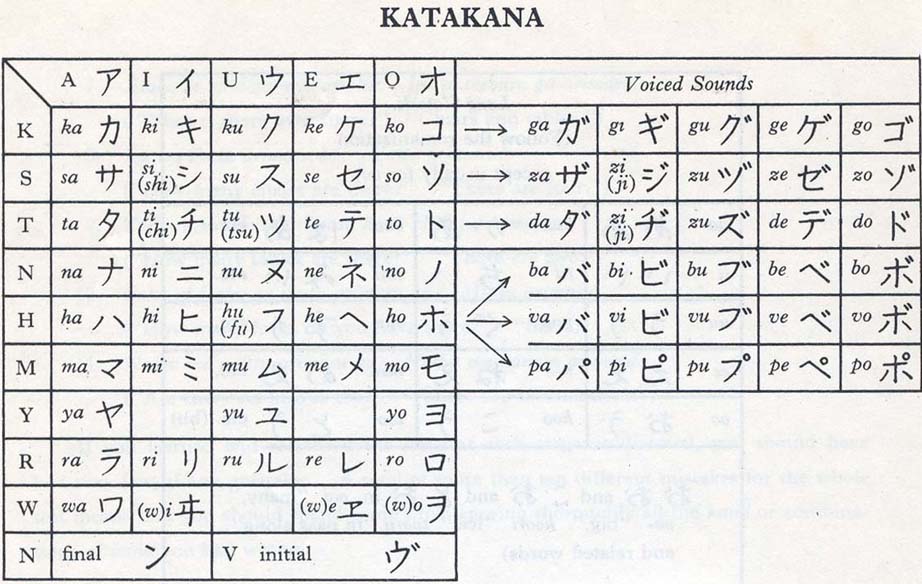 KATAKANA
A ア I イ U ウ E エ O オ Voiced Sounds
K ka カ ki キ ku ク ke ケ ko コ → ga ガ gi ギ gu グ ge ゲ go ゴ
S sa サ si (shi) シ su ス se セ so ソ → za ザ zi (ji) ジ zu ヅ ze ゼ zo ゾ
T ta タ ti (chi) チ tu (tsu) ツ te テ to ト → da ダ zi (ji) ヂ zu ズ de デ do ド
N na ナ ni ニ nu ヌ ne ネ no ノ ba バ bi ビ bu ブ be ベ bo ボ
H ha ハ hi ヒ hu (fu) フ he ヘ ho ホ → va バ vi ビ vu ブ ve ベ vo ボ
M ma マ mi ミ mu ム me メ mo モ pa パ pi ピ pu プ pe ペ po ポ
Y ya ヤ yu ユ yo ヨ
R ra ラ ri リ ru ル re レ ro ロ
W wa ワ (w)i ヰ (w)e ヱ (w)o ヲ
N final ン V initial ヴ